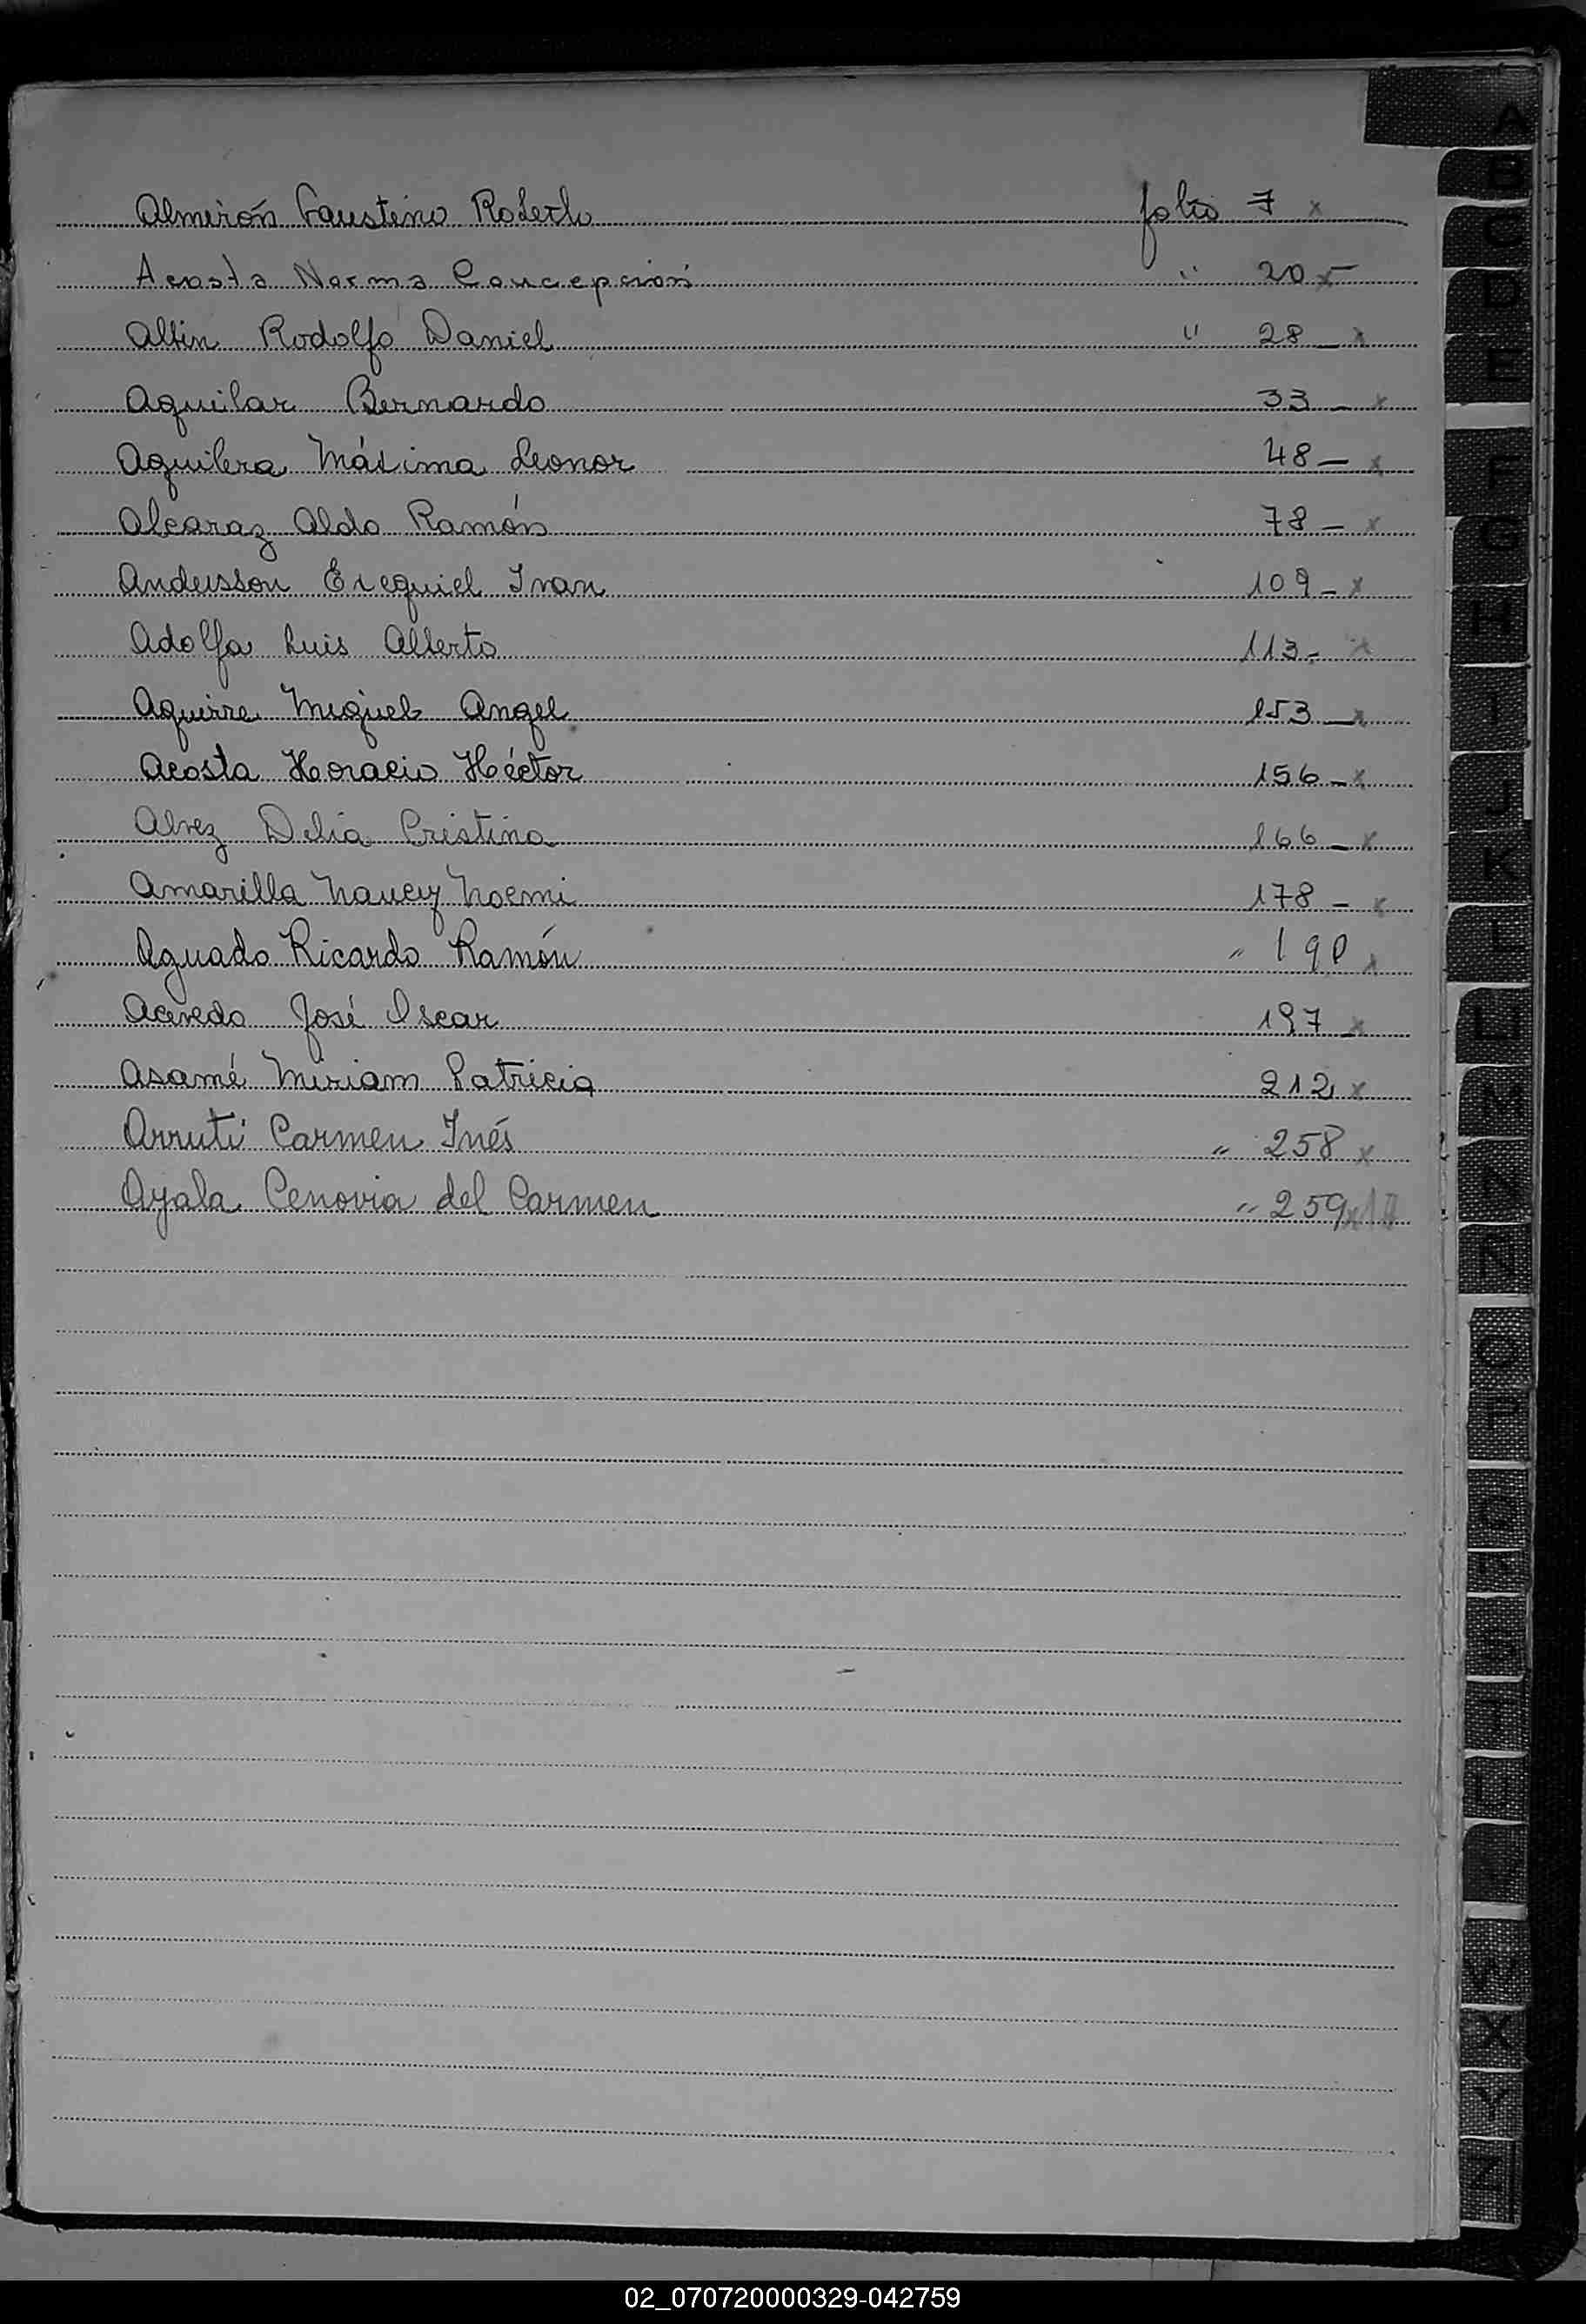 Almirón Faustino Roberto folio 7 x
Acosta Norma Concepción " 20 x
Albin Rodolfo Daniel " 28 _ x
Aguilar Bernardo 33 _ x
Aguilera Máxima Leonor 48 _ x
Alcaraz Aldo Ramón 78 _ x
Andersson Exequiel Ivan 109 _ x
Adolfo Luis Alberto 113 _ x
Aguirre Miguel Angel 153 _ x
Acosta Horacio Héctor 156 _ x
Alvez Delia Cristina 166 _ x
Amarilla Nancy Noemi 178 _ x
Aguado Ricardo Ramón " 190 x
Acevedo José Oscar 197 _ x
Asamé Miriam Patricia 212 x
Arruti Carmen Inés " 258 x
Ayala Cenovia del Carmen " 259 x 17
A
B
C
D
E
F
G
H
I
J
K
L
LL
M
N
Ñ
O
P
Q
R
S
T
U
V
W
X
Y
Z
02_070720000329-042759